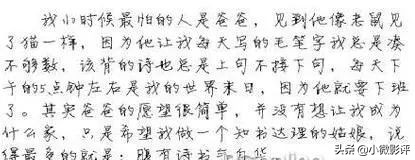 我小时候最怕的人是爸爸，见到他像老鼠见
了猫一样，因为他让我每天写的毛笔字我总是凑
不够数，该背的诗也总是上句不接下句，每天下
午的5点钟左右是我的世界末日，因为他就要下班
了。其实爸爸的愿望很简单，并没有想让我成为
什么家，只是希望我做一个知书达理的姑娘，说
得最多的就是：腹有诗书气自华
头条 @小微影评